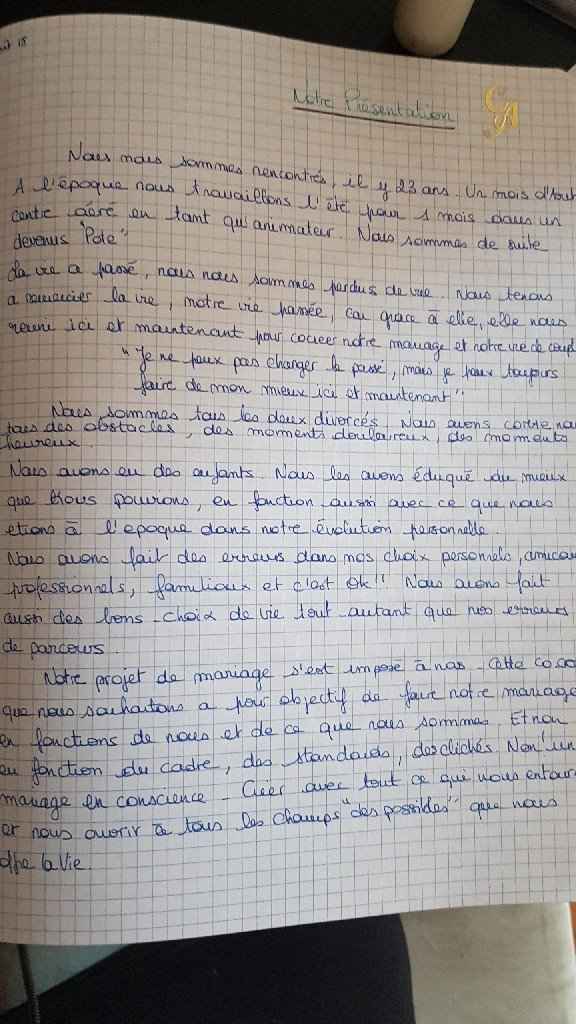 Notre Présentation
Nous nous sommes rencontrés, il y 23 ans. Un mois d'Aout
A l'époque nous travaillons l'été pour 1 mois dans un
centre aéré en tant qu'animateur. Nous sommes de suite
devenus "Pote"
La vie a passé, nous nous sommes perdus de vue. Nous tenons
a remercier la vie, notre vie passée, car grace à elle, elle nous
réuni ici et maintenant pour cocréer notre mariage et notre vie de coupl
"Je ne peux pas changer le passé, mais je peux toujours
faire de mon mieux ici et maintenant"
Nous sommes tous les deux divorcés. Nous avons
tous des obstacles, des moments douloureux, des moments
heureux.
Nous avons eu des enfants. Nous les avons éduqué du mieux
que nous pouvions, en fonction aussi avec ce que nous
etions à l'epoque dans notre évolution personnelle.
Nous avons fait des erreurs dans nos choix personnels, amicau
professionnels, familiaux et c'est Ok!! Nous avons fait
aussi des bons choix de vie tout autant que nos erreurs
de parcours.
Notre projet de mariage s'est imposé à nous. Cette
que nous souhaitons a pour objectif de faire notre mariage
en fonctions de nous et de ce que nous sommes. Et non
en fonction du cadre, des standards, des clichés
mariage en conscience. Créer avec tout ce qui nous entoure
et nous ouvrir à tous les champs "des possibles" que nous
la Vie.